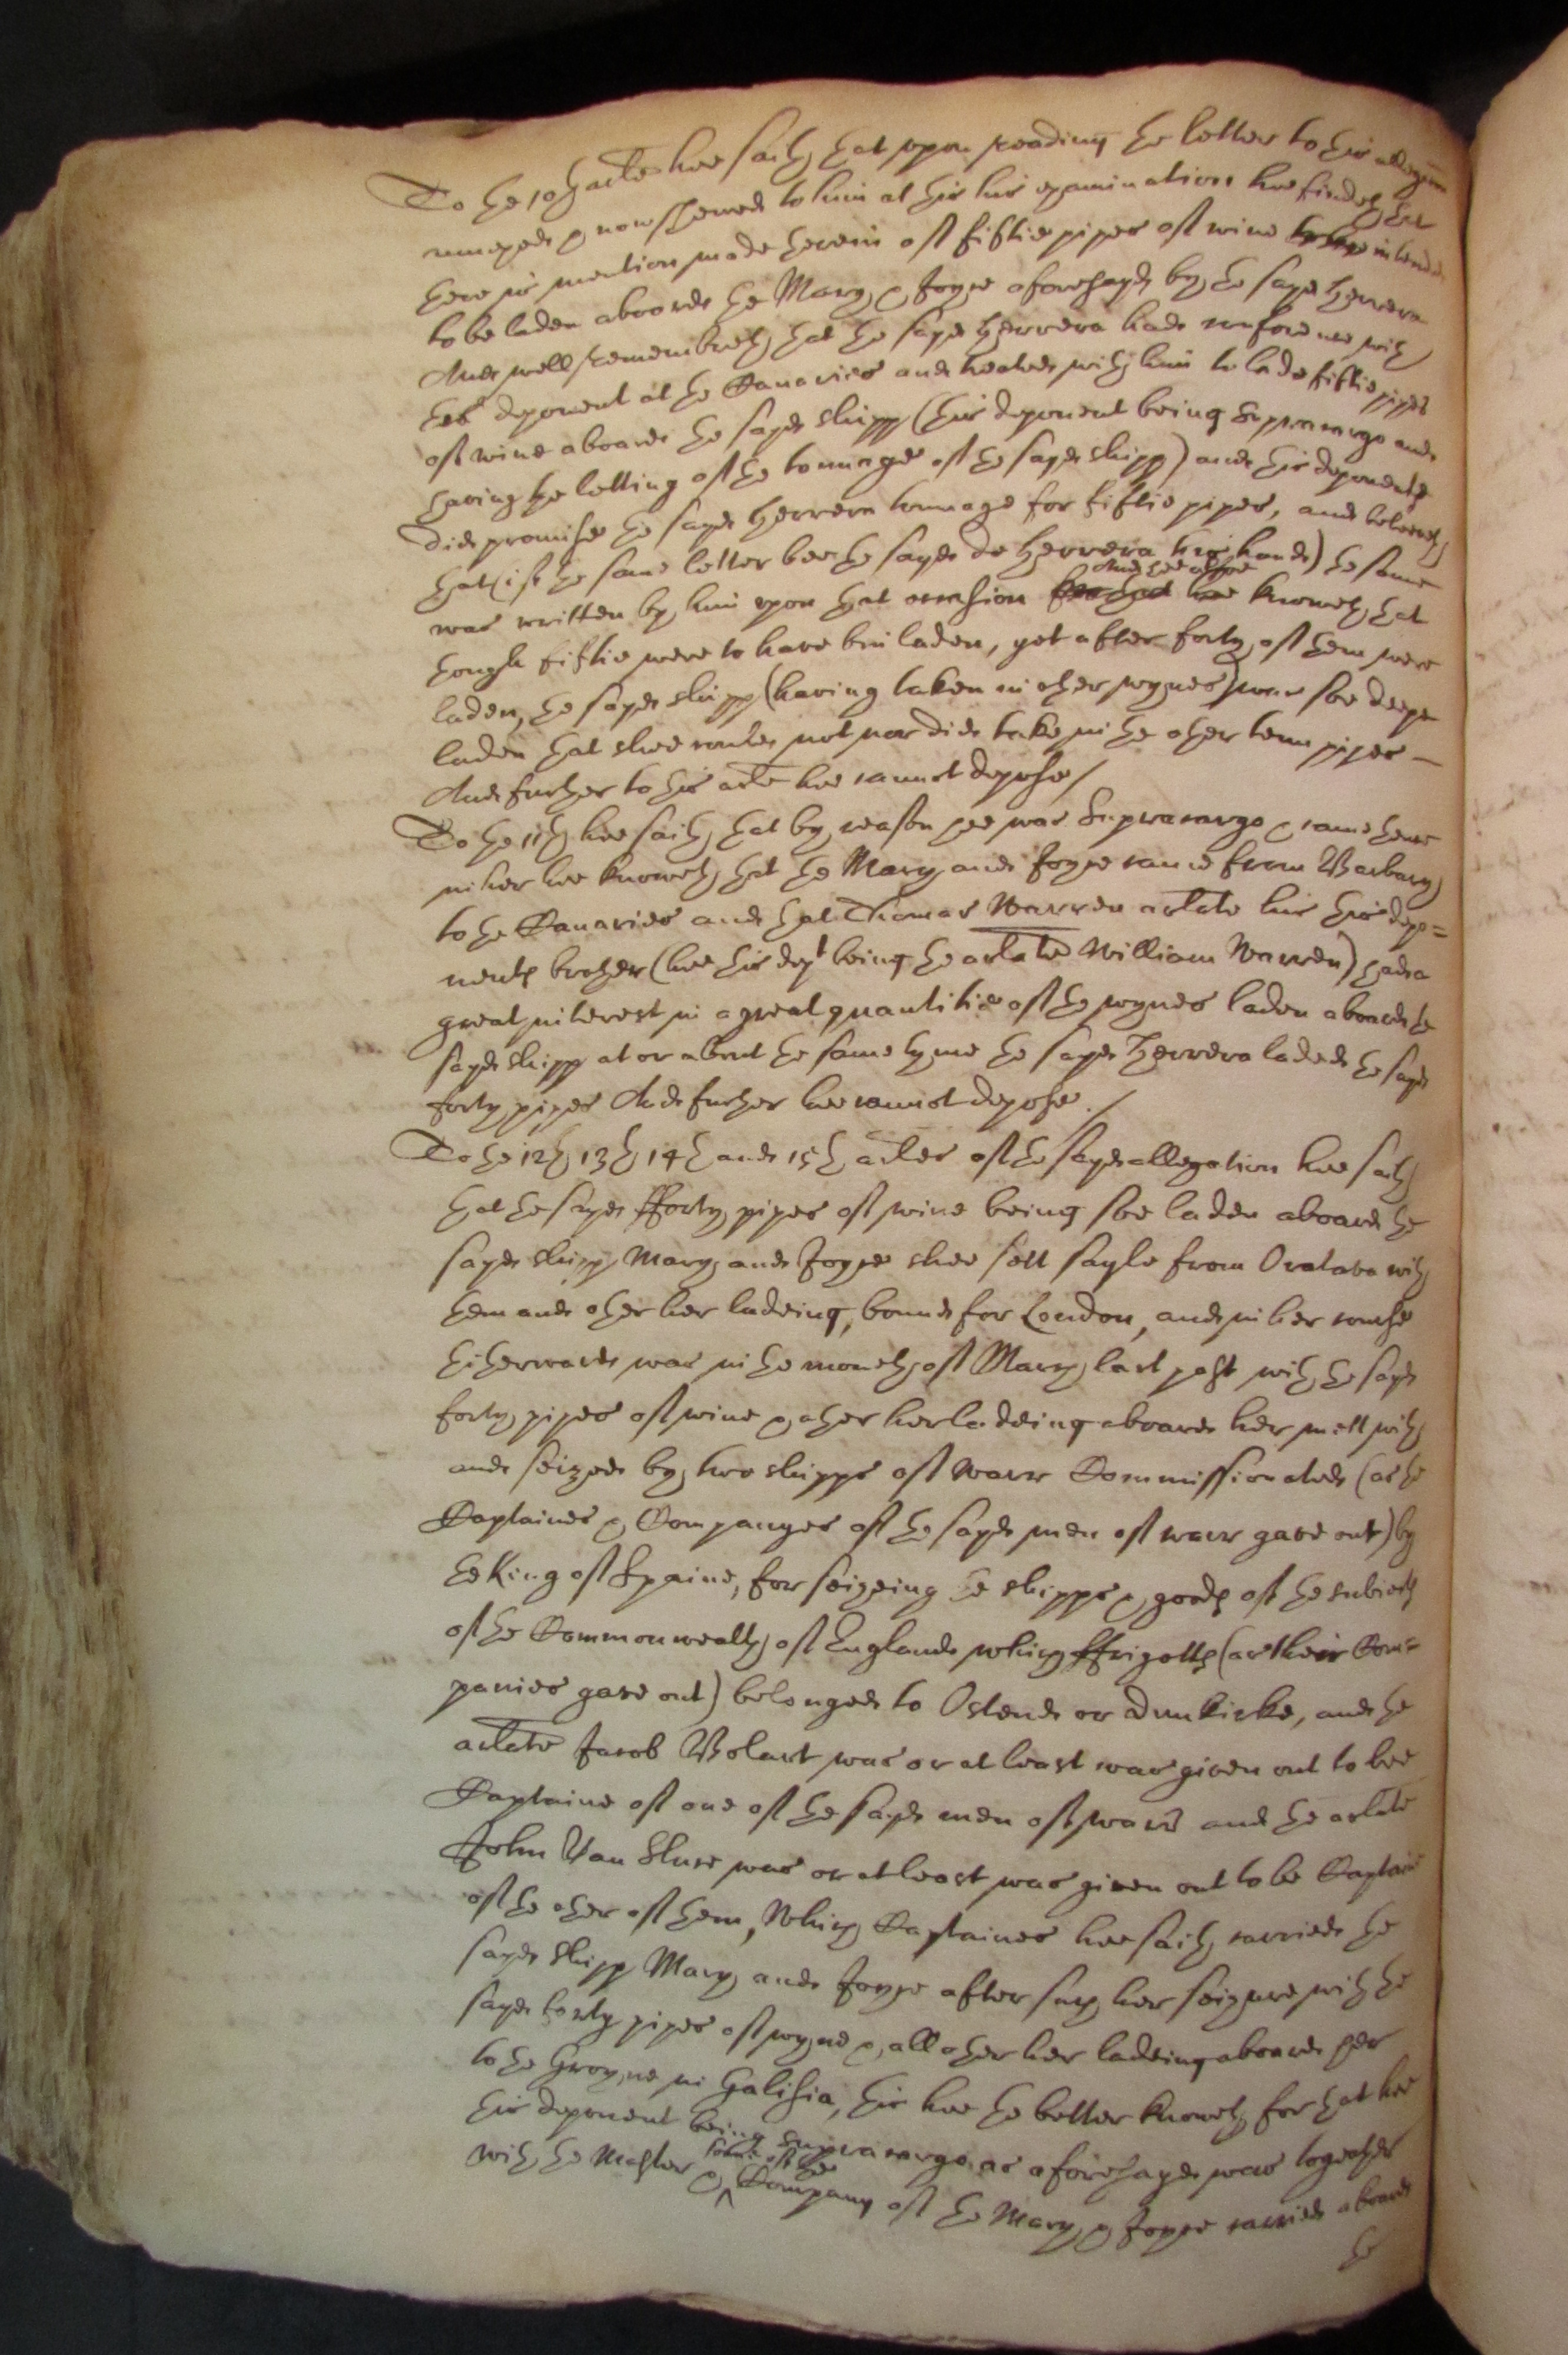 To the 10th arle hee saith that upon reading the letter to this allegaon
annexed & now shewed to him at this his examination hee findeth that
there is mention made therein of fiftie pipes of wine to bee intended
to be laden aboard the Mary & Joyce aforesayd by the sayd Herrera
And well remembreth that the sayd Herrera had conference with
this deponent at the Canaries and treated with him to lade fiftie pipes
of wine aboard the sayd shipp (this deponent being Supracargo and
having the letting of the tonnage of the sayd shipp) and this deponent
did promise the sayd Herrera tonnage for fiftie pipes, and beleeveth
that (if the same letter bee the sayd de Herrera his hand) the same
was written by him upon that occasion for that hee And hee alsoe knoweth that
though fiftie were to have bin laden, yet after forty of them were
laden, the sayd shipp (having taken in other wynes) was soe deepe
laden that shee could not nor did take in the other tenn pipes -
And further to this arle hee cannot depose /
To the 11th hee saith that by reason hee was Supracargo & came home
in her hee knoweth that the Mary and Joyce came from Barbary
to the Canaries and that Thomas Warren arlate his this depo=
nents brother (hee this dept being the arlate William Warren) had a
great interest in a great quantitie of the wynes laden aboard the
sayd shipp at or about the same tyme the sayd Herrera laded the sayd
forty pipes And further hee cannot depose. /
To the 12th 13th 14th and 15th arles of the sayd allegation hee saith
that the sayd fforty pipes of wine being soe laden aboard the
sayd shipp Mary and Joyce shee sett sayle from Oratava with
them and other her ladeing, bound for London, and in her course
thitherward was in the moneth of May last past with the sayd
forty pipes of wine & other her ladeing aboard her mett with
and seized by two shipps of warr Commissionated (as the
Captaines & Companyes of the sayd men of warr gave out) by
the King of Spaine, for seizeing the shipps & goods of the subiects
of the Commonwealth of England which ffrigotts (as their Com=
panies gave out) belonged to Ostend or Dunkirke, and the
arlate Jacob Bolart was or at least was given out to bee
Captaine of one of the sayd men of warr and the arlate
John Van Sluce was or at least was given out to be Captaine
of the other of them, Which Captaines hee saith carried the
sayd shipp Mary and Joyce after such her seizure with the
sayd forty pipes of wyne & all other her ladeing aboard her
to the Groyne in Galisia, this hee the better knoweth for that hee
this deponent being Supracargo as aforesayd was together
with the Master & some of the Company of the Mary & Joyce carried aboard
the